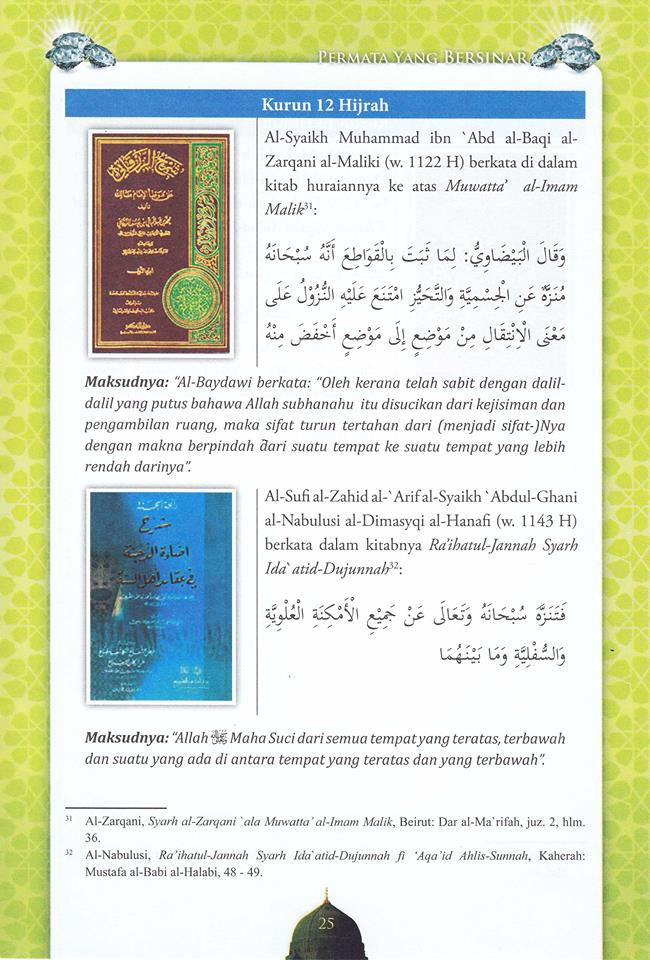 PERMATA YANG BERSINAR
Kurun 12 Hijrah
Al-Syaikh Muhammad ibn `Abd al-Baqi al-
Zarqani al-Maliki (w. 1122 H) berkata di dalam
kitab huraiannya ke atas Muwatta’ al-Imam
Malik31:
وَقَالَ الْبَيْضَاوِيُّ: لِمَا ثَبَتَ بِالْقَوَاطِعِ أَنَّهُ سُبْحَانَهُ
مُنَزَّهٌ عَنِ الْجِسْمِيَّةِ وَالتَّحَيُّزِ امْتَنَعَ عَلَيْهِ النُّزُوْلُ عَلَى
مَعْنَى الْاِنْتِقَالِ مِنْ مَوْضِعٍ إِلَى مَوْضِعٍ أَخْفَضَ مِنْهُ
Maksudnya: “Al-Baydawi berkata: “Oleh kerana telah sabit dengan dalil-
dalil yang putus bahawa Allah subhanahu itu disucikan dari kejisiman dan
pengambilan ruang, maka sifat turun tertahan dari (menjadi sifat-)Nya
dengan makna berpindah dari suatu tempat ke suatu tempat yang lebih
rendah darinya”.
شرح
اضاءة الدجنة
في عقائد أهل السنة
Al-Sufi al-Zahid al-`Arif al-Syaikh `Abdul-Ghani
al-Nabulusi al-Dimasyqi al-Hanafi (w. 1143 H)
berkata dalam kitabnya Ra’ihatul-Jannah Syarh
Ida`atid-Dujunnah32:
فَتَنَزَّهَ سُبْحَانَهُ وَتَعَالَى عَنْ جَمِيْعِ الْأَمْكِنَةِ الْعُلْوِيَّةِ
وَالسُّفْلِيَّةِ وَمَا بَيْنَهُمَا
Maksudnya: “Allah ﷻ Maha Suci dari semua tempat yang teratas, terbawah
dan suatu yang ada di antara tempat yang teratas dan yang terbawah”.
31 Al-Zarqani, Syarh al-Zarqani `ala Muwatta’ al-Imam Malik, Beirut: Dar al-Ma`rifah, juz. 2, hlm.
36.
32 Al-Nabulusi, Ra’ihatul-Jannah Syarh Ida`atid-Dujunnah fi ‘Aqa’id Ahlis-Sunnah, Kaherah:
Mustafa al-Babi al-Halabi, 48 - 49.
25